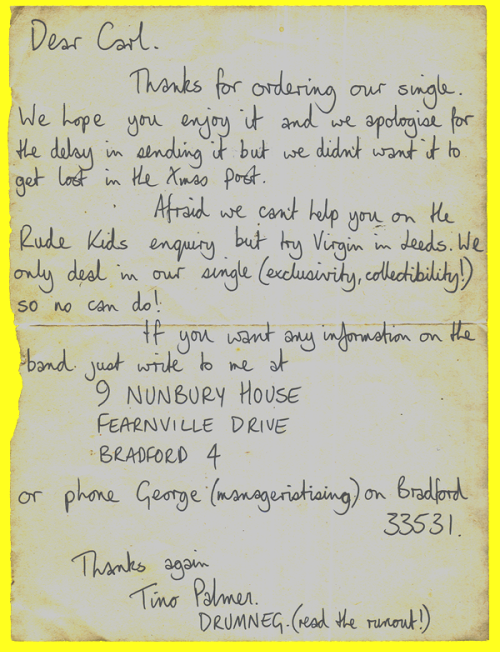 Dear Carl.
Thanks for ordering our single.
We hope you enjoy it and we apologise for
the delay in sending it but we didn't want it to
get lost in the Xmas Post.
Afraid we can't help you on the
Rude Kids enquiry but try Virgin in Leeds. We
only deal in our single (exclusivity, collectibility!)
so no can do!
If you want any information on the
band just write to me at
9 NUNBURY HOUSE
FEARNVILLE DRIVE
BRADFORD 4
or phone George (manageristising) on Bradford
33531.
Thanks again
Tino Palmer.
DRUMNEG. (read the runout!)